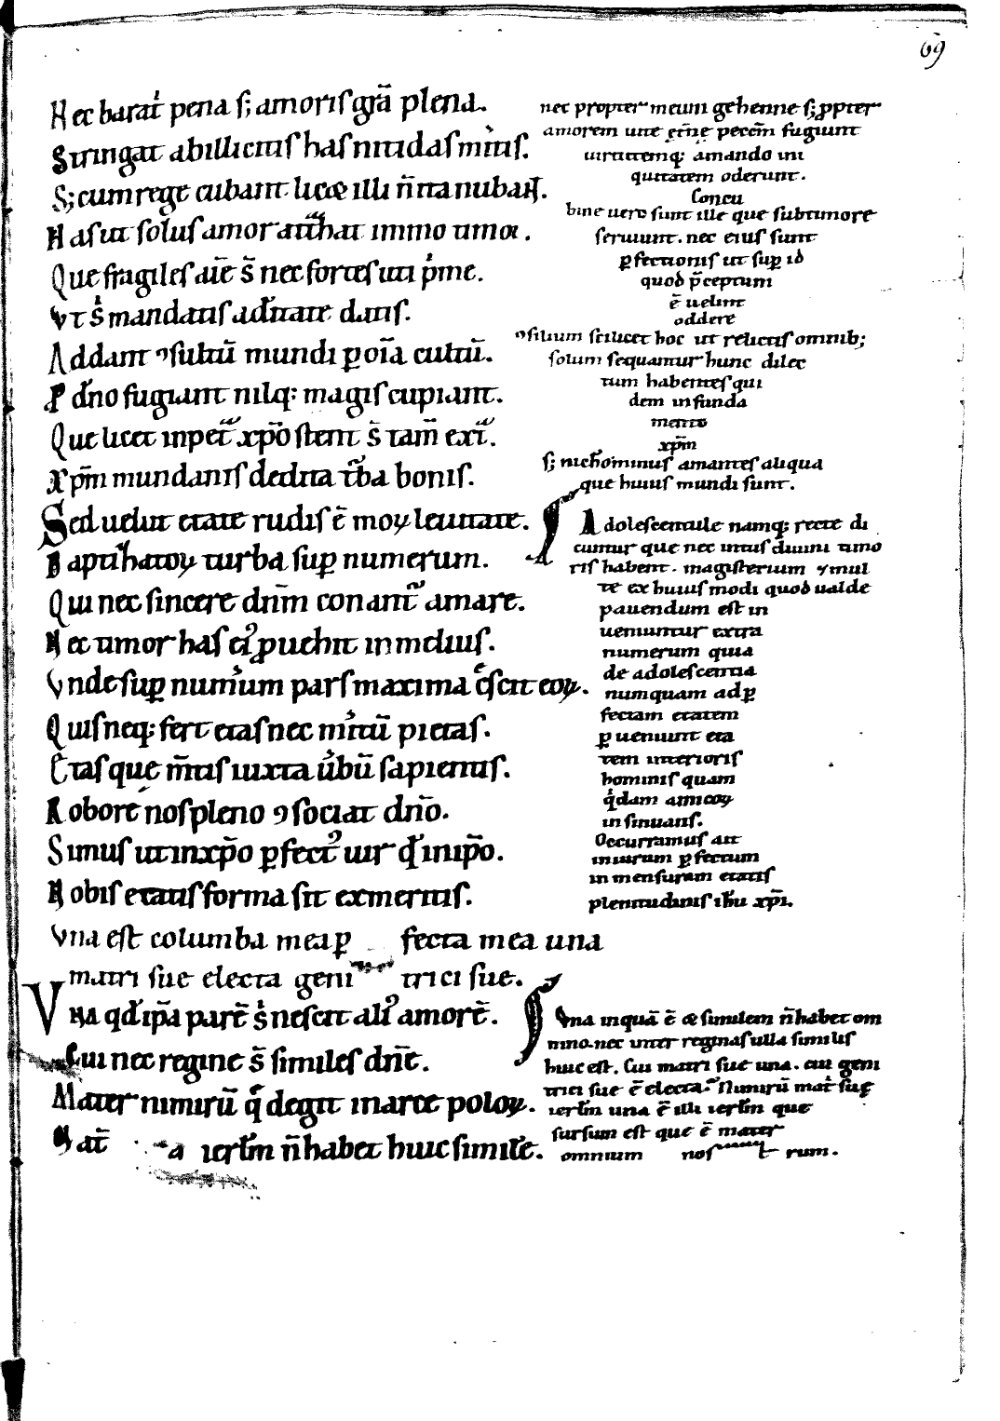 69
Nec barat̄ pena s; amoris gr̄a plena.
Stringat abillicitus has nitidas mitus.
S; cum rege cubant licæ illi n̄ tta nubant.
Has ut solus amor attͬhat immo timor.
Que fragiles aīe s̄ nec fortes uti pͥme.
Vt sͥ mandatis adͥtate datis.
Addant ꝯsultū mundi ꝑ oīa cultū.
P dn̄o fugiant nilq; magis cupiant.
Que licet inpetͬ xp̄o stent s̄ tam̄ extͬ.
Xp̄m mundanis dedita tͬba bonis.
Sed uelut etate rudis ē moꝝ leuitate.
Baptihatoꝝ turba suꝑ numerum.
Qui nec sincere dn̄m conantᷣ amare.
Nec timor has ꝑuehit in melius.
Vnde suꝑ numͥum pars maxima cͤscit eoꝝ.
Quis neq; fert etas nec mͥtū pietas.
Etas que m̄tis iuxta ubū sapientis.
Robore nos pleno ꝯsociat dn̄o.
Simus ut in xp̄o ꝑfectᷣ uir qͥ in ip̄o.
Nobis etatis forma sit ex meritis.
Vna est columba mea ꝑ fecta mea una
matri sue electa geni trici sue.
Vna qd̓ ip̄a parē sͥ nescit aliᷣ amorē.
Cui nec regine s̄ similes dn̄e.
Mater nimirū q̄ degit in arce poloꝝ.
Nat̄ a ierl̄m n̄ habet huic simile.
nec propter meum gehenne s; ꝓpter
amorem uite et̄ne peccm̄ fugiunt
uirtutemq; amando ini
quitatem oderunt.
Concu
bine uero sunt ille que sub timore
seruiunt. nec eius sunt
ꝑfectionis ut suꝑ id
quod p̄ceptum
ē uelint
addere
ꝯsilium scilicet hoc ut relictis omnib;
solum sequantur hunc dilec
tum habentes qui
dem in funda
mento
xp̄m
s; nichominus amantes aliqua
que huius mundi sunt.
Adolescentule namq; recte di
cuntur que nec intus diuini timo
ris habent. magisterium ⁊ mul
te ex huius modi quod ualde
pauendum est in
ueniuntur extra
numerum quia
de adolescentia
numquam ad ꝑ
fectam etatem
ꝑ ueniunt eta
tem interioris
hominis quam
qͥdam amicoꝝ
insinuans.
Occurramus ait
in uirum ꝑfectum
in mensuram etatis
plenitudinis ih̄u xp̄i.
Vna inquā ē æ similem n̄ habet om
nino. nec inter reginas ulla similis
huic est. Cui matri sue una. cui geni
trici sue ē electa. Nimirū matͥ sue
ierl̄m una ē illi ierl̄m que
sursum est que ē mater
omnium nos t rum.